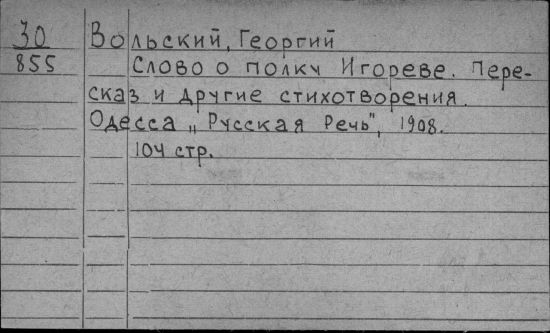 30 Вольский, Георгий
855 Слово о полку Игореве. Пере-
сказ и другие стихотворения.
Одесса „Русская Речь", 1908.
104 стр.